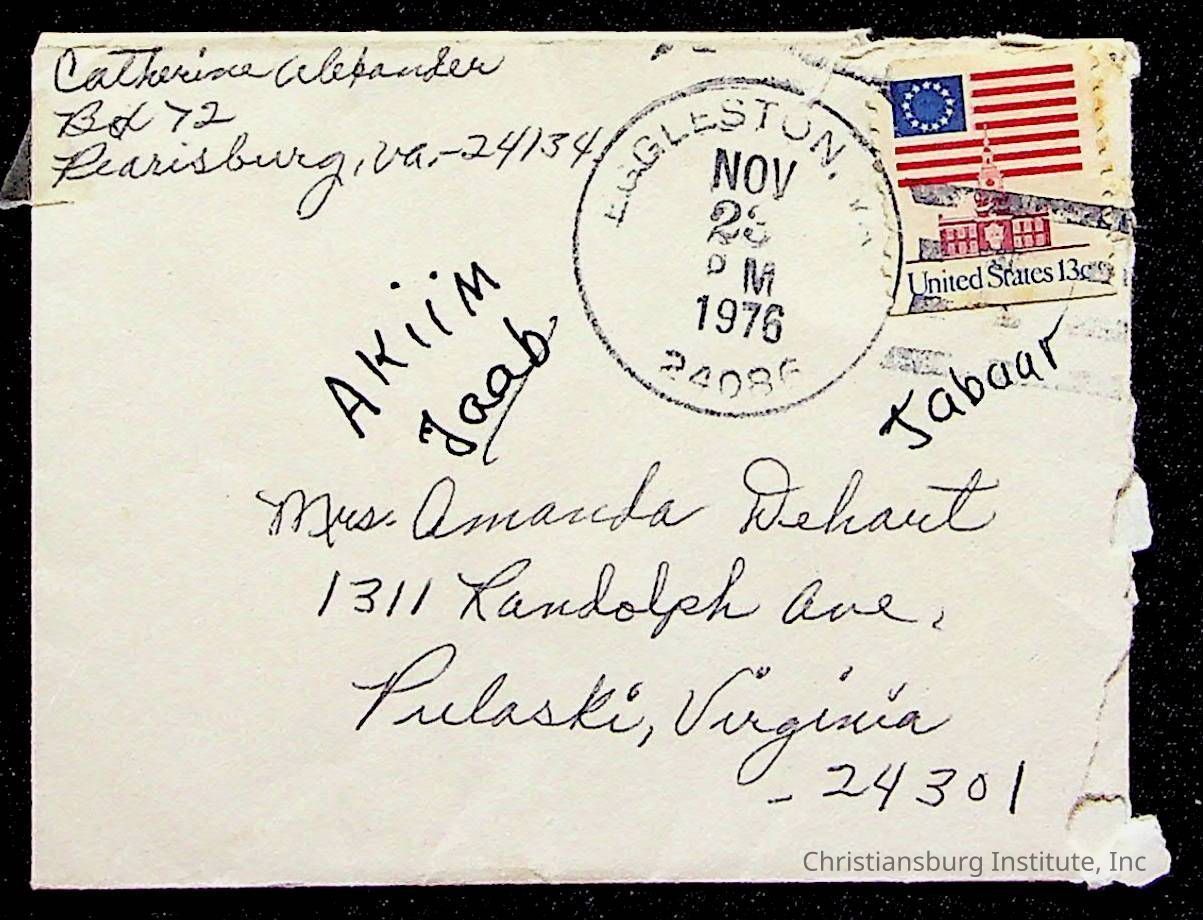 Catherine Alexander
Box 72
Pearisburg, Va.-24134
EGGLESTON, VA
NOV
PM
1976
24086
United States 13c
AKiiM
Jaab
Jabaar
Mrs. Amanda Dehart
1311 Randolph Ave,
Pulaski, Virginia
- 24301
Christiansburg Institute, Inc